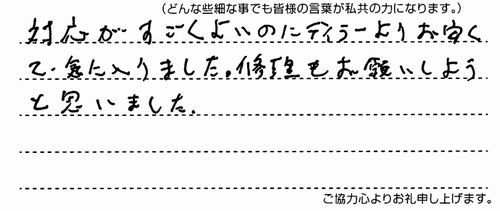 (どんな些細な事でも皆様の言葉が私共の力になります。)
対応がすごくよいのにディラーよりお安く
て気に入りました。修理もお願いしよう
と思いました。
ご協力心よりお礼申し上げます。